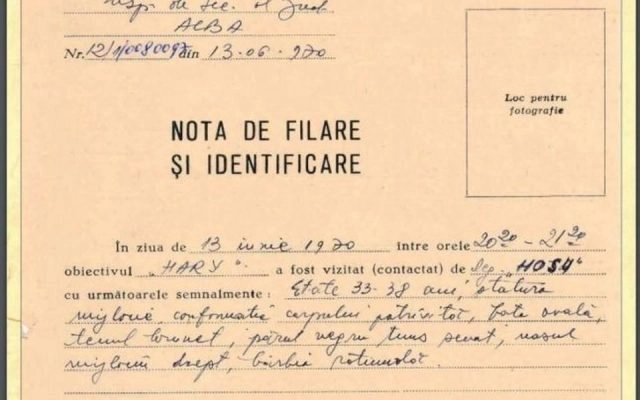 Insp. de Sec. al Jud.
ALBA
Nr. 12/ 0080097 din 13.06.970
Loc pentru
fotografie
NOTA DE FILARE
ȘI IDENTIFICARE
În ziua de 13 iunie 1970 între orele 20²⁰ - 21²⁰
obiectivul „HARY". a fost vizitat (contactat) de leg. „HOSU"
cu următoarele semnalmente: Etate 33-38 ani, statură
mijlocie conformația corpului potrivită, fața ovală,
tenul brunet, părul negru tuns scurt, nasul
mijlociu drept, bărbia rotundă.